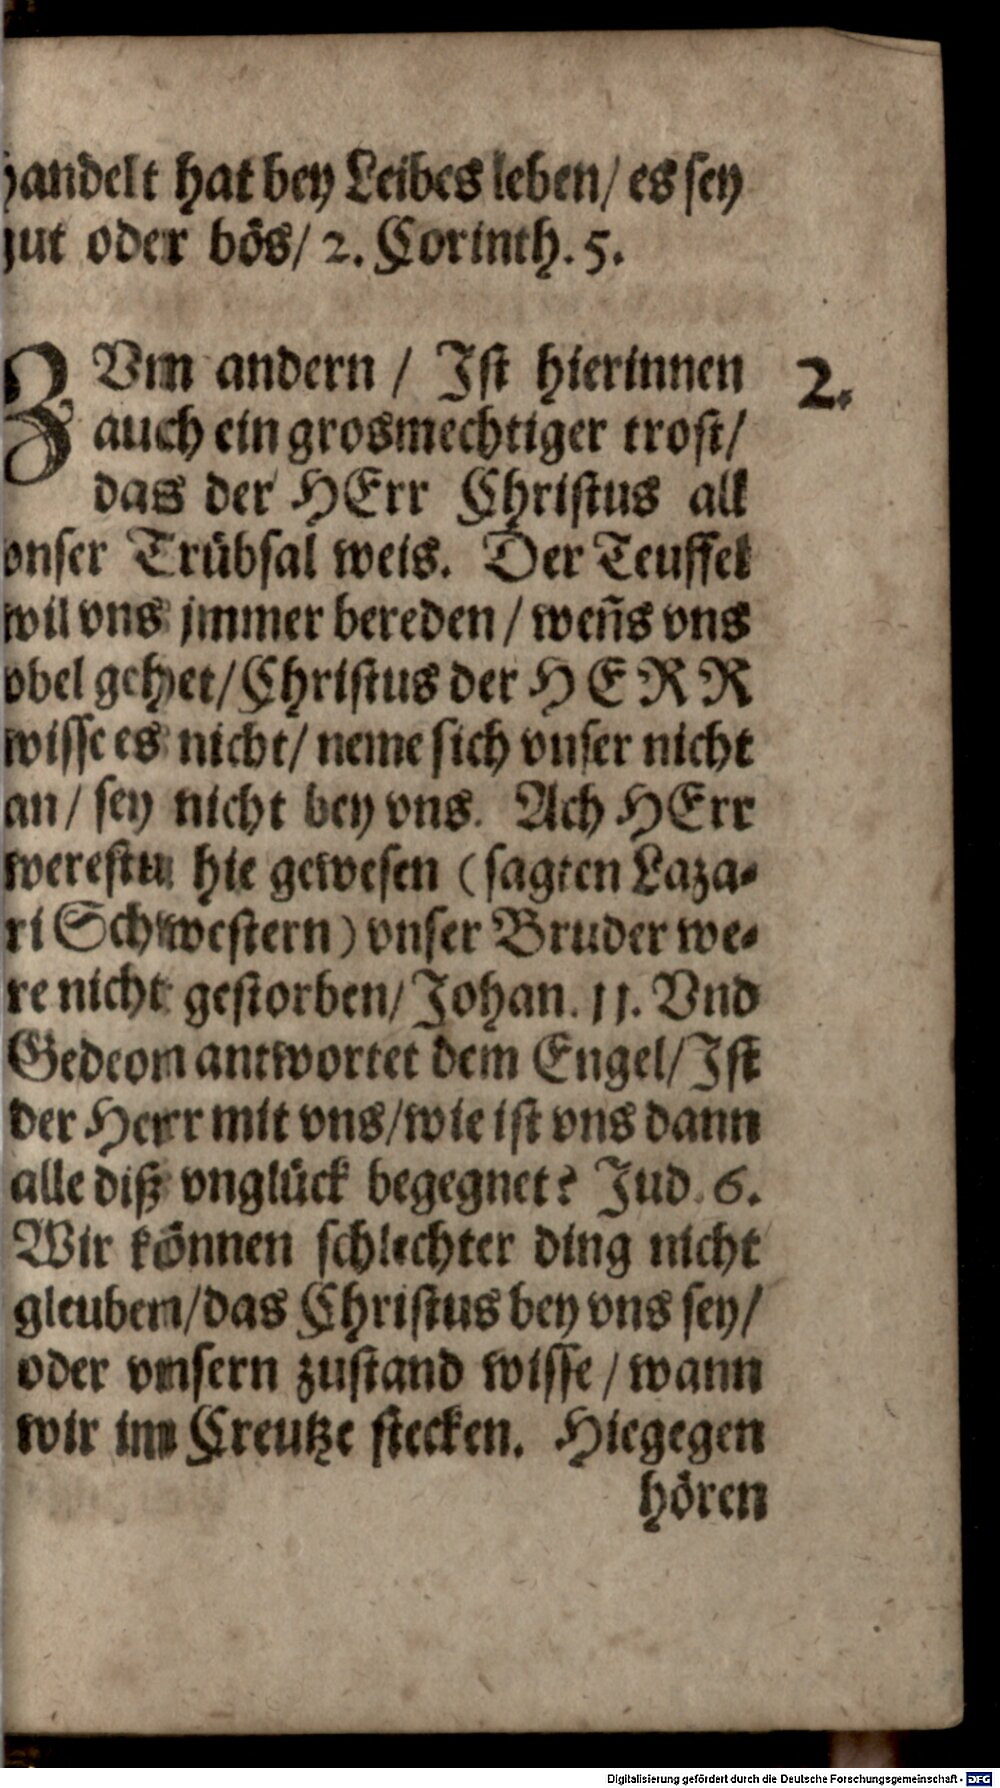 handelt hat bey Leibes leben/ es sey
gut oder bös/ 2. Corinth. 5.
ZVm andern / Ist hierinnen
2.
auch ein grosmechtiger trost/
das der HErr Christus all
vnser Trübsal weis. Der Teuffel
wil vns jmmer bereden / weñs vns
vbel gehet/ Christus der HERR
wisse es nicht/ neme sich vnser nicht
an/ sey nicht bey vns. Ach HErr
werestu hie gewesen (sagten Laza-
ri Schwestern) vnser Bruder we-
re nicht gestorben/ Johan. 11. Vnd
Gedeom antwortet dem Engel/ Ist
der Herr mit vns/ wie ist vns dann
alle diß vnglück begegnet? Jud. 6.
Wir können schlechter ding nicht
gleuben/ das Christus bey vns sey/
oder vnsern zustand wisse / wann
wir im Creutze stecken. Hiegegen
hören
Digitalisierung gefördert durch die Deutsche Forschungsgemeinschaft - DFG